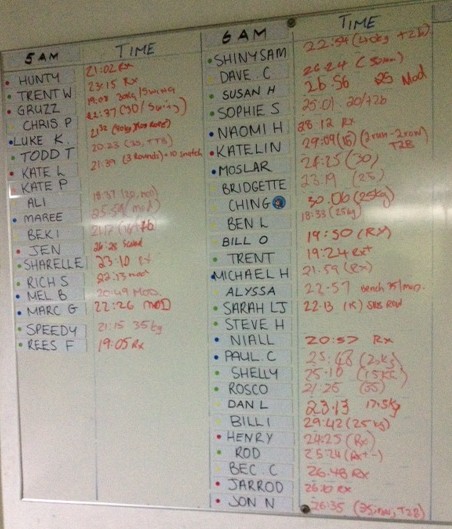 5 AM TIME
HUNTY 21:02 Rx
TRENT W 23:15 Rx
GRUZZ 19:08 30kg/Swing
CHRIS P 22:37 (30/Swing)
LUKE K
TODD T 20:23 (30, TTB)
KATE L 21:39 (3 Rounds) + 10 snatch
KATE P
ALI 18:37 (20, mod)
MAREE 25:59 mod
BEKI
JEN
SHARELLE 23:10
RICH S 22:13 mod
MEL B 20:49 MOD.
MARC G 22:26 MOD
SPEEDY 21:15 35kg
REES F 19:05 Rx
6 AM TIME
SHINY SAM 22:54
DAVE. C 26:24
SUSAN H 26:56 25 Mod
SOPHIE S 25:01 20/t2b
NAOMI H 28:12 Rx
KATELIN 29:09 T2B
MOSLAR 24:25 (30)
BRIDGETTE 23:19 (25)
CHING 30:06 (25kg)
BEN L 18:33 (25kg)
BILL O 19:50 (RX)
TRENT 19:24 Rx
MICHAEL H 21:59 (Rx)
ALYSSA 22:57
SARAH LJ 22:13
STEVE H
NIALL 20:57 Rx
PAUL. C 25:48
SHELLY 25:10 (15KG)
ROSCO 21:25 (35)
DAN L 23:13 17.5kg
BILLI 29:42 (25kg)
HENRY 24:25 (Rx)
ROD 25:24 (Rx+-)
BEC. C 26:48 Rx
JARROD 26:10 RX
JON N 26:35 T2B)